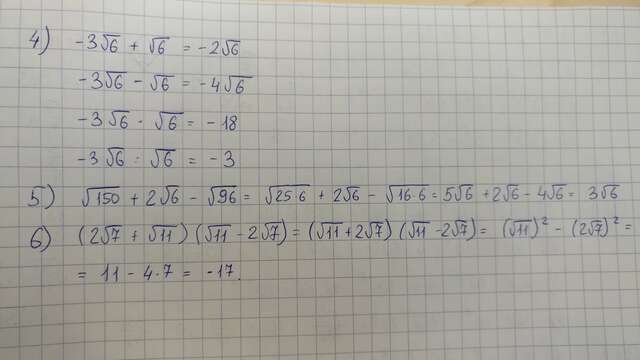 4) -3√6 + √6 = -2√6
-3√6 - √6 = -4√6
-3√6 · √6 = -18
-3√6 : √6 = -3
5) √150 + 2√6 - √96 = √25·6 + 2√6 - √16·6 = 5√6 + 2√6 - 4√6 = 3√6
6) (2√7 + √11) (√11 - 2√7) = (√11 + 2√7) (√11 - 2√7) = (√11)² - (2√7)² =
= 11 - 4·7 = -17.